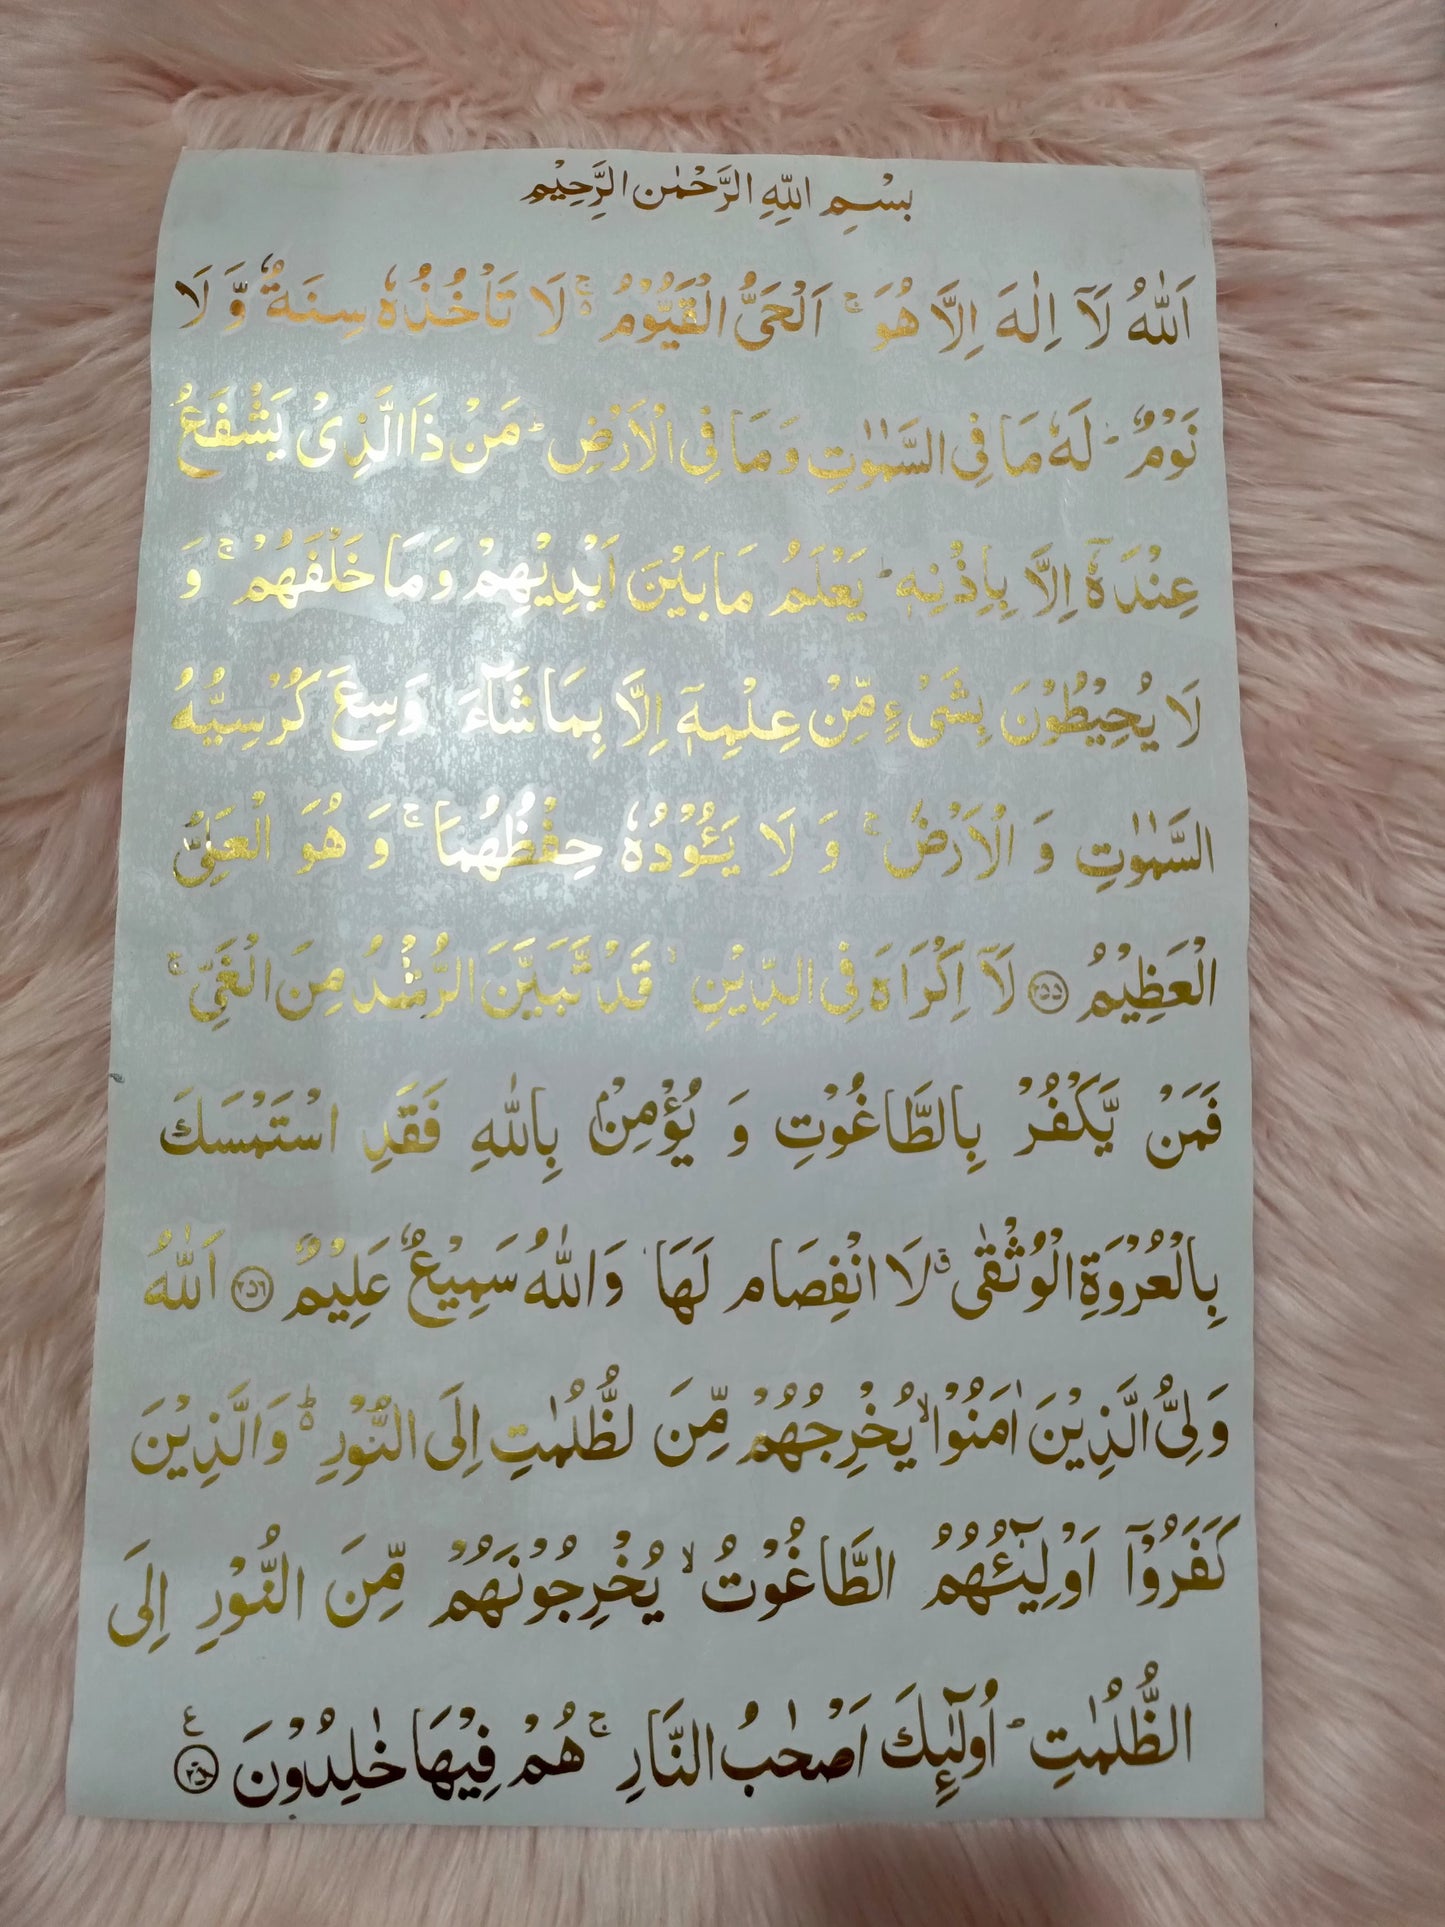 بِسْمِ اللّٰهِ الرَّحْمٰنِ الرَّحِيْمِ
اَللّٰهُ لَآ اِلٰهَ اِلَّا هُوَ ۚ اَلْحَىُّ الْقَيُّوْمُ ۚ۬ لَا تَاْخُذُهٗ سِنَةٌ وَّ لَا
نَوْمٌ ؕ لَهٗ مَا فِى السَّمٰوٰتِ وَ مَا فِى الْاَرْضِ ؕ مَنْ ذَا الَّذِىْ يَشْفَعُ
عِنْدَهٗۤ اِلَّا بِاِذْنِهٖ ؕ يَعْلَمُ مَا بَيْنَ اَيْدِيْهِمْ وَ مَا خَلْفَهُمْ ۚ وَ
لَا يُحِيْطُوْنَ بِشَىْءٍ مِّنْ عِلْمِهٖۤ اِلَّا بِمَا شَآءَ وَسِعَ كُرْسِيُّهُ
السَّمٰوٰتِ وَ الْاَرْضَ ۚ وَ لَا يَـُٔوْدُهٗ حِفْظُهُمَا ۚ وَ هُوَ الْعَلِىُّ
الْعَظِيْمُ ۝۲۵۵ لَآ اِكْرَاهَ فِى الدِّيْنِ قَدْ تَّبَيَّنَ الرُّشْدُ مِنَ الْغَىِّ ۚ
فَمَنْ يَّكْفُرْ بِالطَّاغُوْتِ وَ يُؤْمِنْۢ بِاللّٰهِ فَقَدِ اسْتَمْسَكَ
بِالْعُرْوَةِ الْوُثْقٰى ۗ لَا انْفِصَام لَهَا وَاللّٰهُ سَمِيْعٌ عَلِيْمٌ ۝۲۵۶ اَللّٰهُ
وَلِىُّ الَّذِيْنَ اٰمَنُوْا ۙ يُخْرِجُهُمْ مِّنَ لظُّلُمٰتِ اِلَى النُّوْرِ ۬ؕ وَالَّذِيْنَ
كَفَرُوْۤا اَوْلِيٰٓـُٔهُمُ الطَّاغُوْتُ ۙ يُخْرِجُوْنَهُمْ مِّنَ النُّوْرِ اِلَى
الظُّلُمٰتِ ؕ اُولٰٓئِكَ اَصْحٰبُ النَّارِ ۚ هُمْ فِيْهَا خٰلِدُوْنَ ع